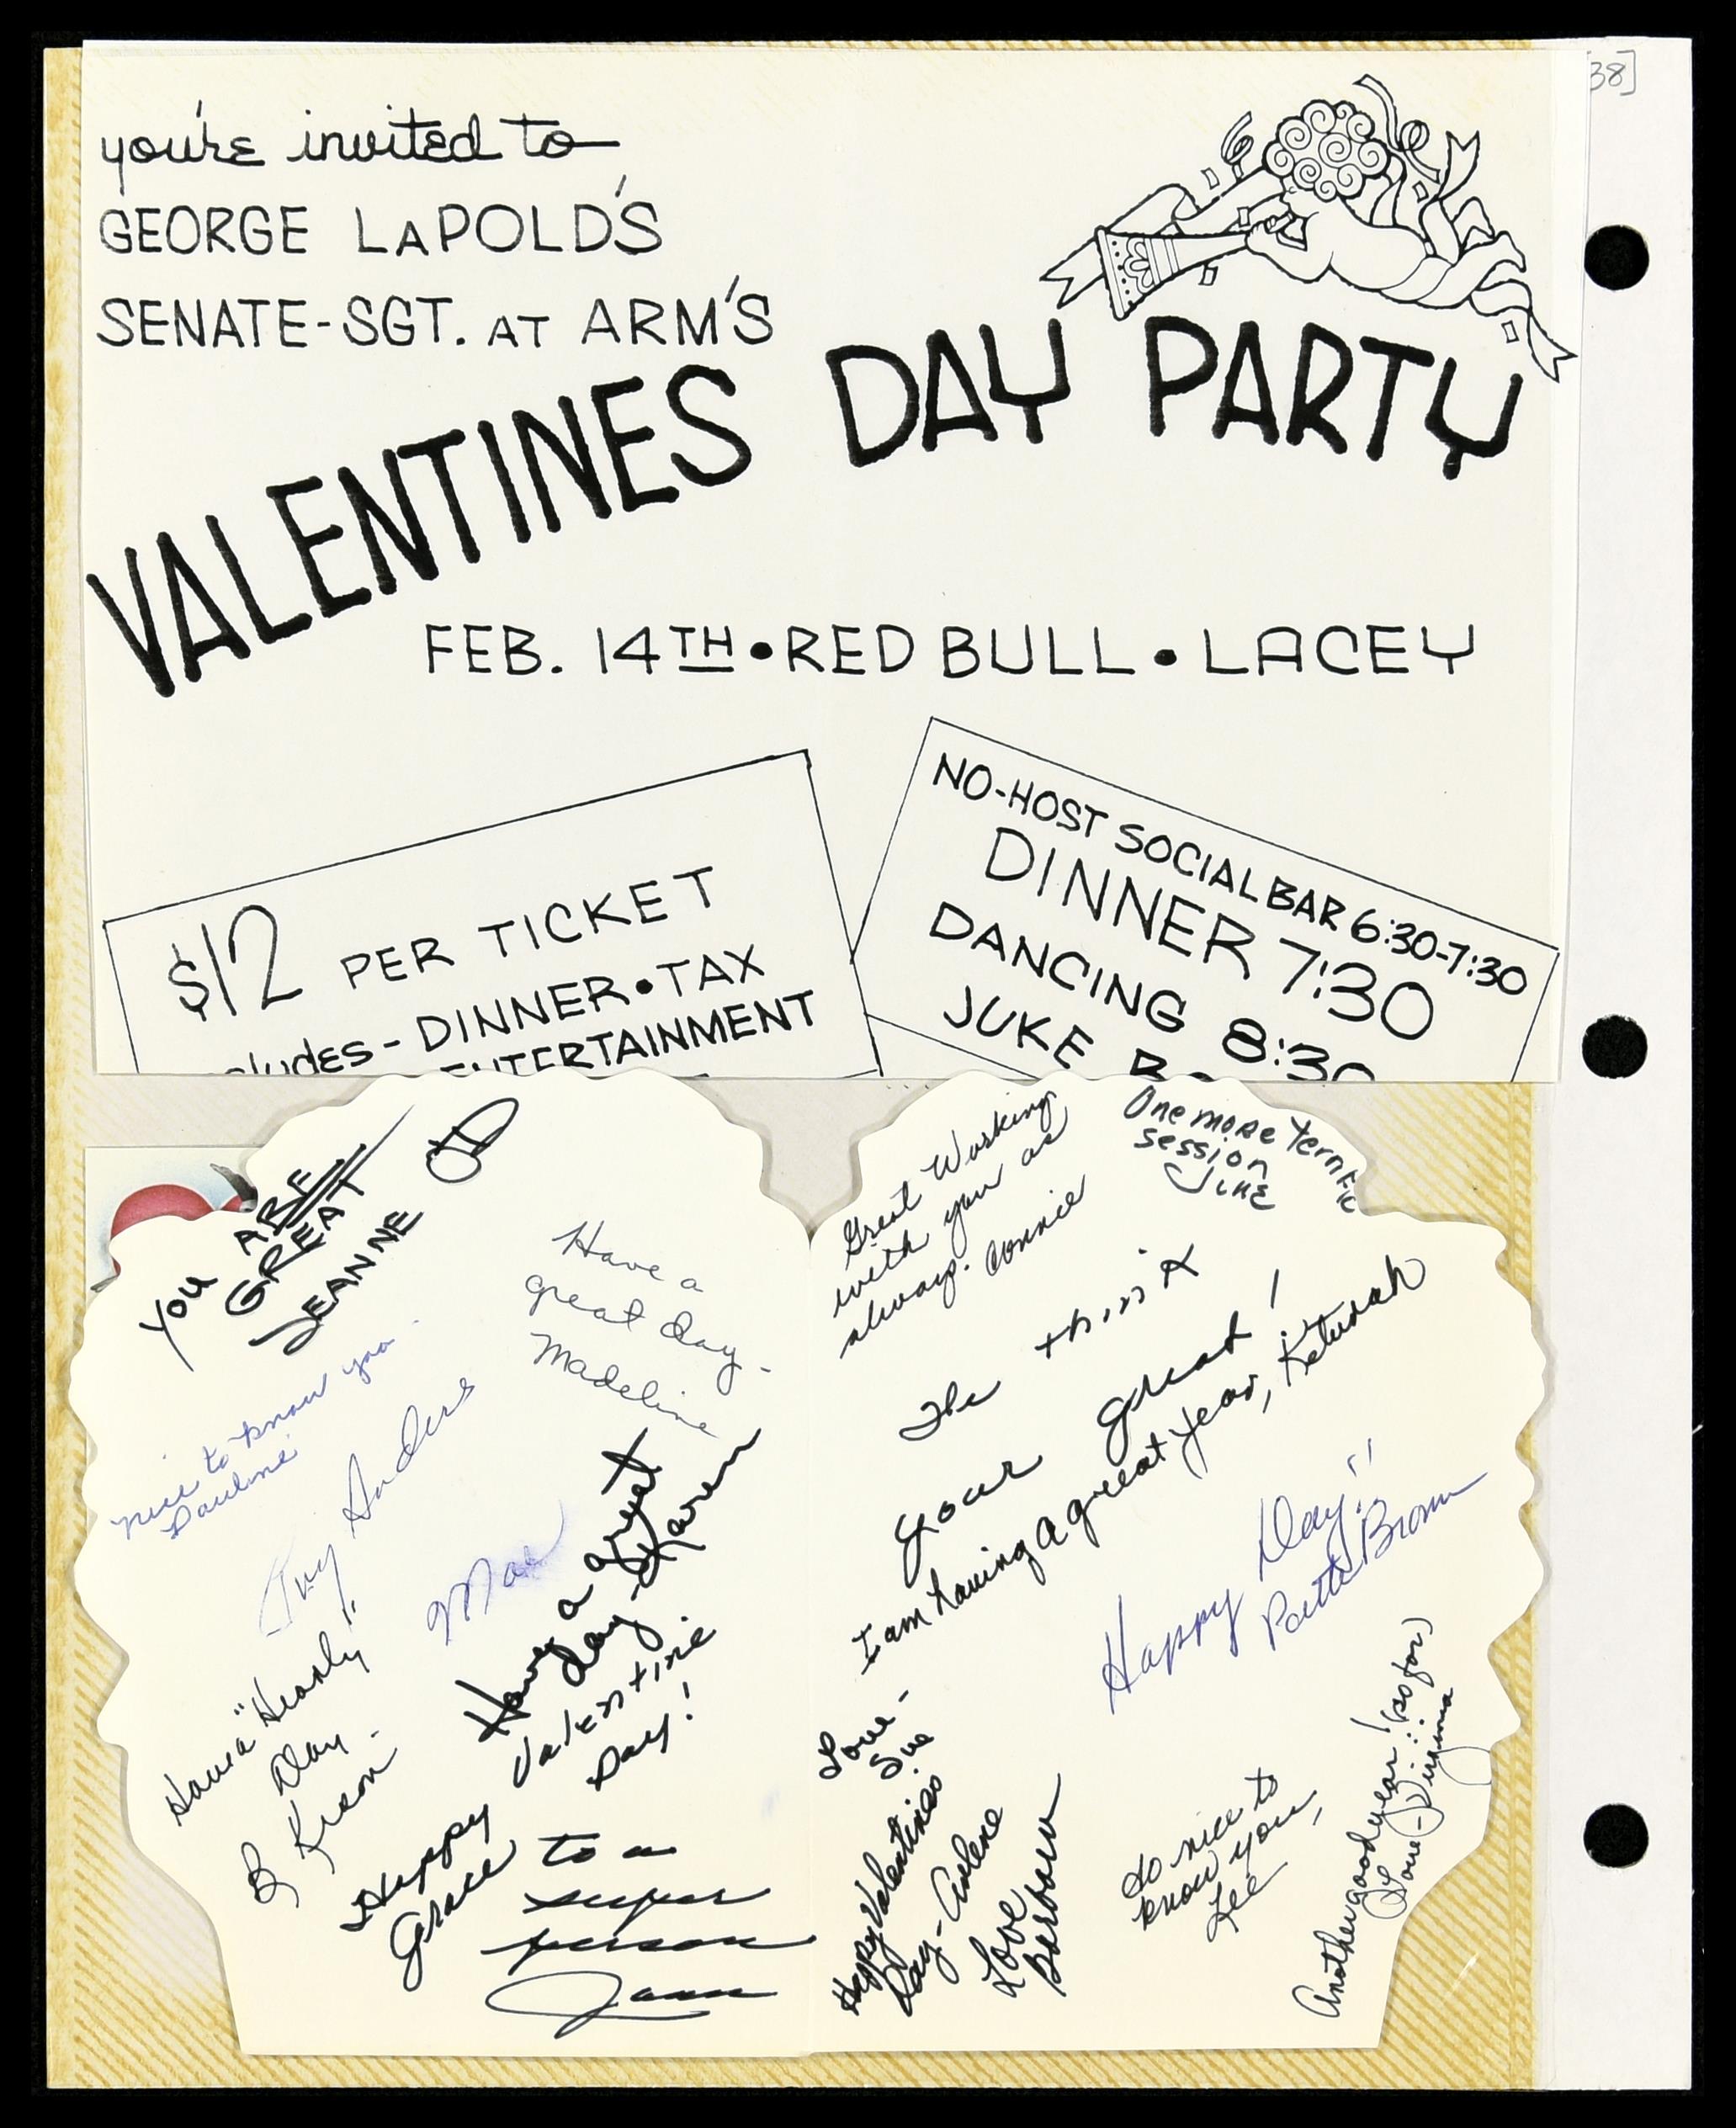 38]
you're invited to
GEORGE LAPOLD'S
SENATE-SGT. AT ARM'S
VALENTINES DAY PARTY
FEB. 14TH • RED BULL • LACEY
$12 PER TICKET
cludes - DINNER • TAX
ENTERTAINMENT
NO-HOST SOCIAL BAR 6:30-7:30
DINNER 7:30
DANCING 8:30
JUKE
You ARE
GREAT
JEANNE
Have a
great day -
Madeline
nice to know you -
Pauline
Anders
Mae
Have a great
day - Karen
Have a "Hearty"
Day -
Happy
Valentine
Day!
Grace
to a
super
person
Great Working
with you as
always. Connie
One more Terrific
session
June
think
your great!
I am having a great year, Keturah
Happy Day!!
Patti Brown
Love -
Sue
Happy Valentines
Day - Arlene
Love
Barbara
So nice to
know you,
Lee
Another good year! (so far)
Love - Virginia